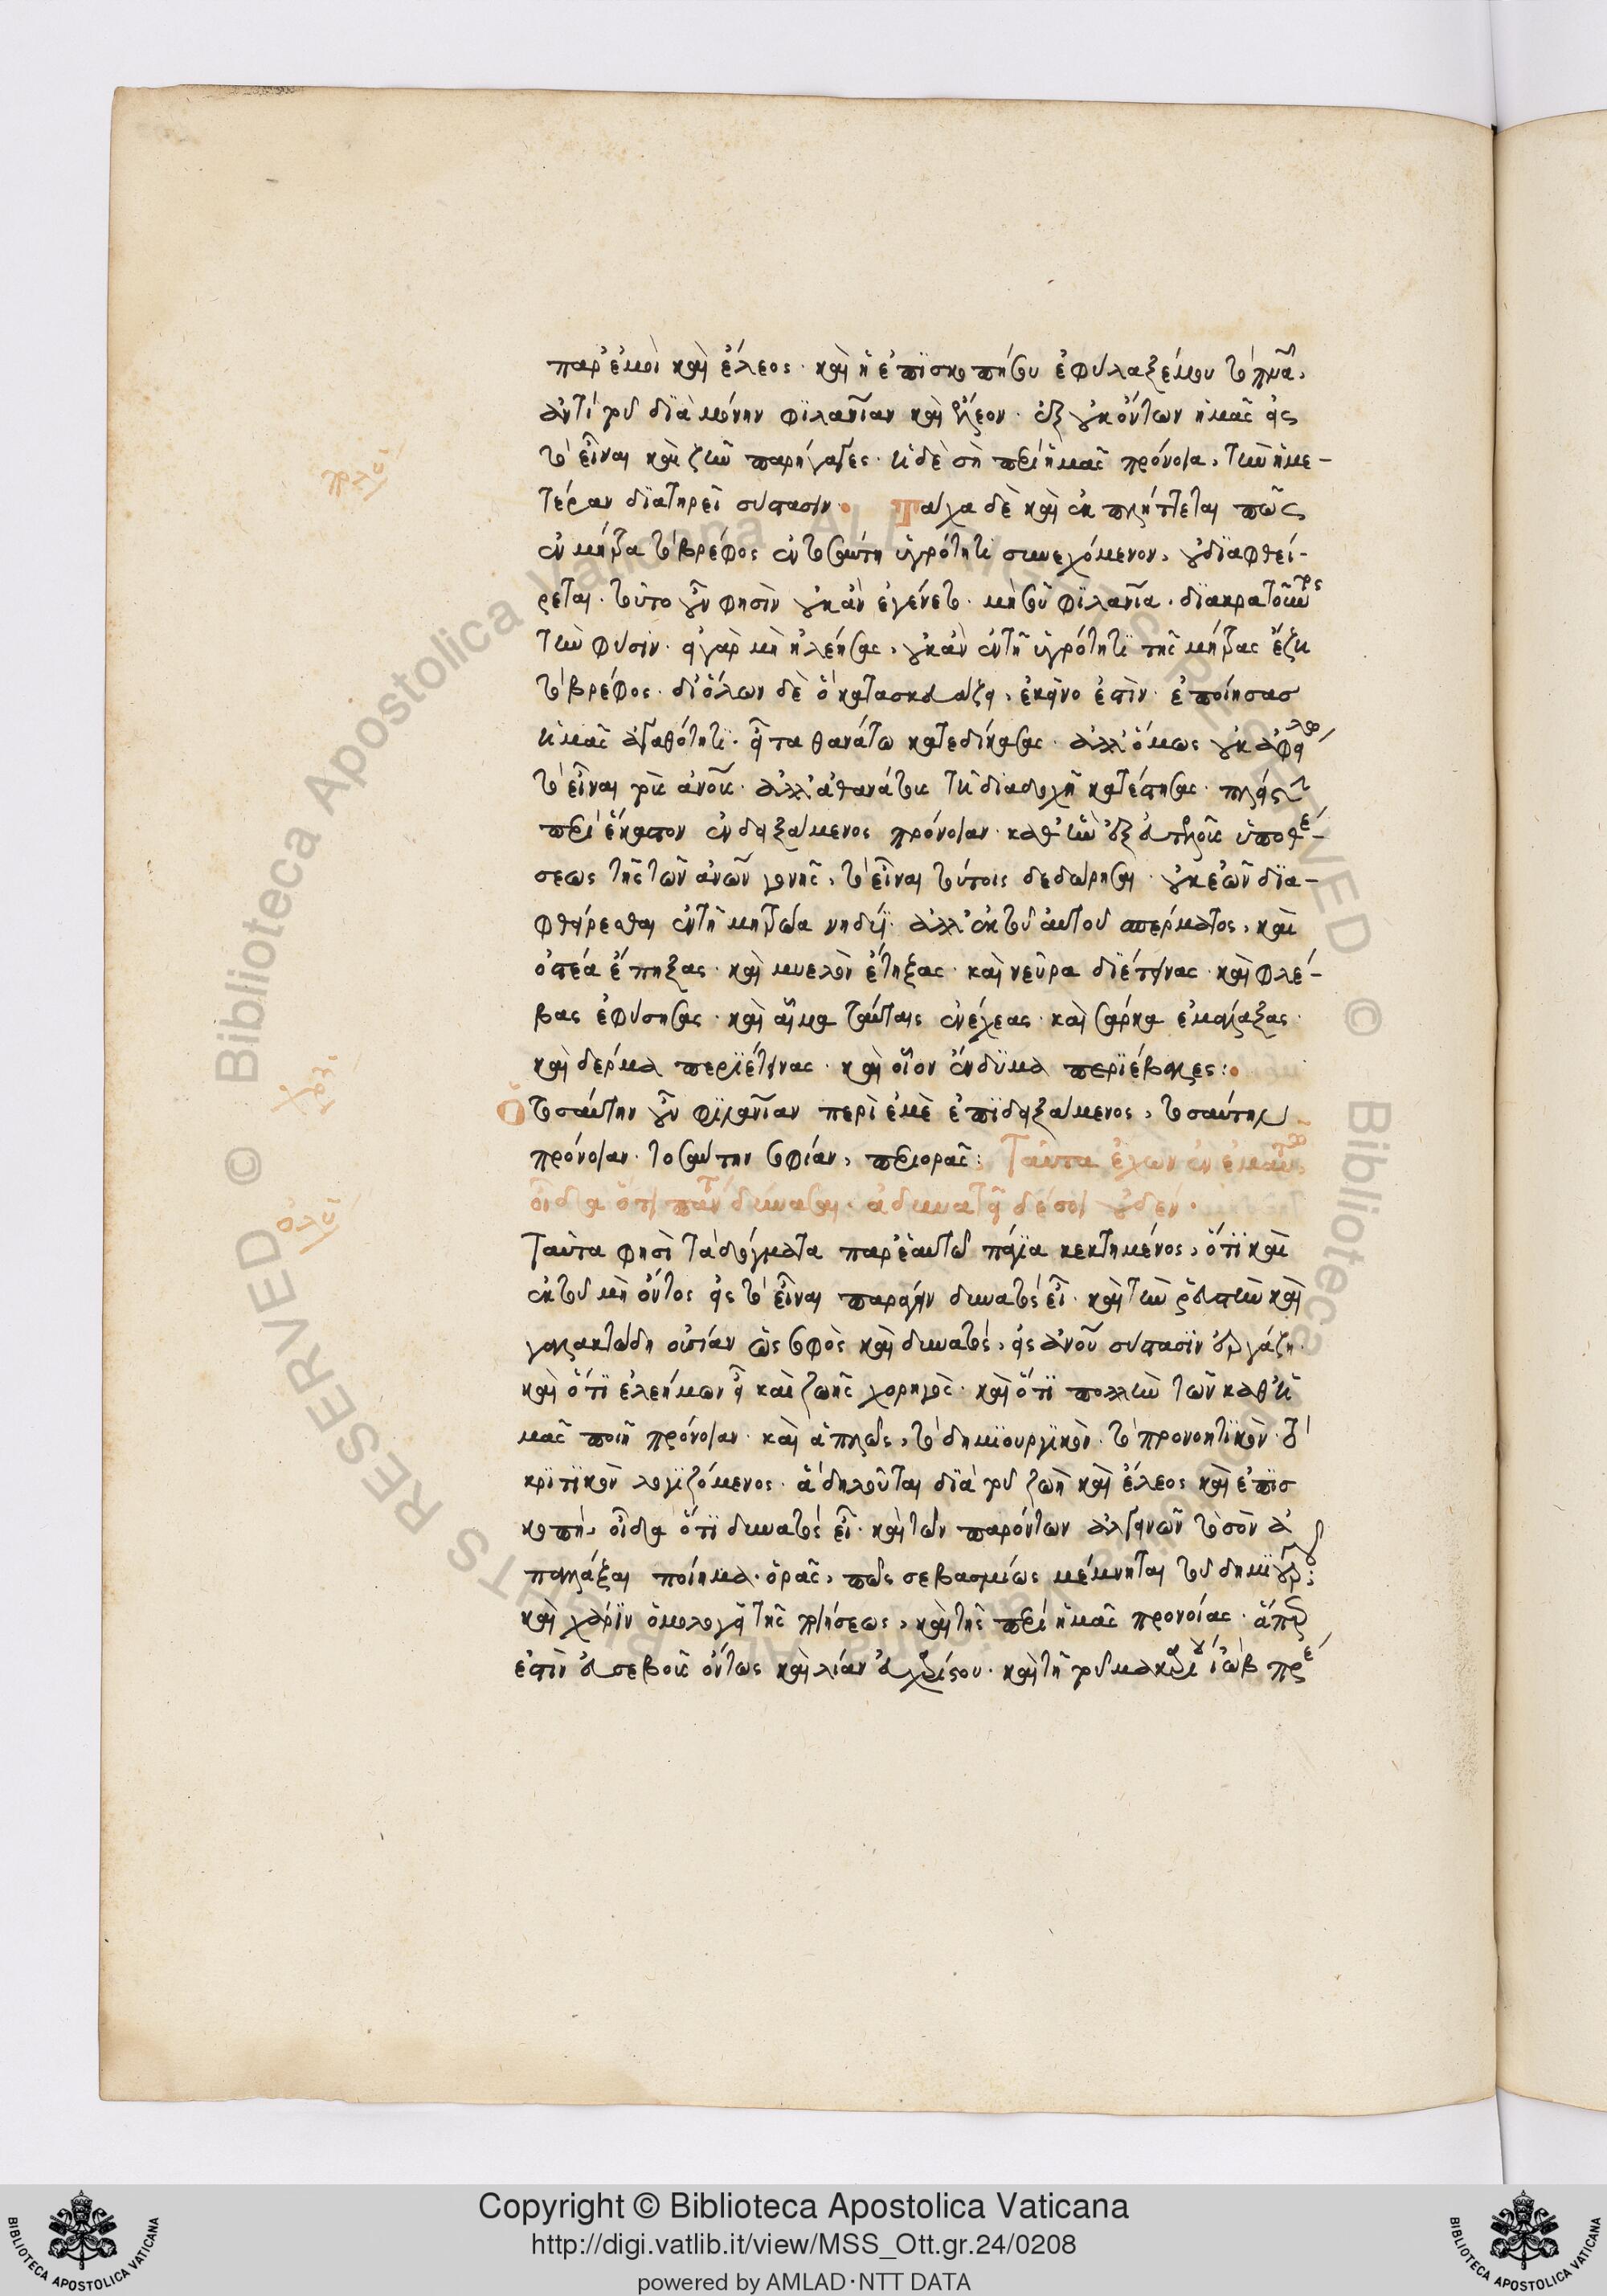 παρ' ἐμοὶ καὶ ἔλεος· καὶ ἡ ἐπϊσκοπή σου ἐφύλαξέ μου τὸ πνα,
ἀντὶ τοῦ διὰ μόνην φϊλανίαν καὶ ἔλεον· ἐξ οὐκ ὄντων ἡμᾶς εἰς
τὸ εἶναι καὶ ζῆν παρήγαγες· ἡ δὲ σὴ περὶ ἡμᾶς πρόνοια, τὴν ἡμε-
τέραν διατηρεῖ σύστασιν· Τάχα δὲ καὶ ἐκπλήττεται πῶς
ἐν μήτρα τὸ βρέφος ἐν τοσαύτη ὑγρότητι συνεχόμενον, οὐ διαφθεί-
ρεται· τοῦτο οὖν φησὶν οὐκ ἂν ἐγένετο· μὴ τοῦ φϊλανία· διακρατοῦντος
τὴν φύσιν· εἰ γὰρ μὴ ἠλέησας, οὐκ ἂν ἐν τῆ ὑγρότητι τῆς μήτρας ἔζη
τὸ βρέφος· δι' ὅλων δὲ ὃ κατασκευάζει, ἐκεῖνο ἐστὶν· ἐποίησασ
ἡμᾶς ἀγαθότητι· εἶτα θανάτω κατεδίκασας· ἀλλ' ὅμως οὐκ
τὸ εἶναι τοὺς ἀνους· ἀλλ' ἀθανάτους τῆ διαδοχῆ κατέστησας·
περὶ ἕκαστον ἐνδειξάμενος πρόνοιαν· καθ' ἣν ἐξ εὐτελοῦς ὑποθέ-
σεως τῆς τῶν ἀνων γονῆς, τὸ εἶναι τούτοις δεδώρησαι· οὐκ ἐῶν δια-
φθείρεσθαι ἐν τῆ μητρώα νηδύϊ· ἀλλ' ἐκ τοῦ αὐτοῦ σπέρματος, καὶ
ὀστέα ἔπηξας· καὶ μυελὸν ἔτηξας· καὶ νεῦρα διέτεινας· καὶ φλέ-
βας ἐφύσησας· καὶ αἷμα ταύταις ἐνέχεας· καὶ σάρκα ἐμάλαξας·
καὶ δέρμα περιέτεινας· καὶ οἷον ἔνδυμα περϊέβαλες:
Ὁ τοσαύτην οὖν φϊλανίαν περὶ ἐμὲ ἐπϊδειξάμενος, τοσαύτην
πρόνοιαν· τοσαύτην σοφίαν, περιορᾶς: Ταῦτα ἔχων ἐν ἐμαυτῶ,
οἶδα ὅτι πάντα δύνασαι· ἀδυνατεῖ δέ σοι οὐδέν·
Ταῦτα φησὶ τὰ δόγματα παρ' ἑαυτῶ πάγια κεκτημένος, ὅτϊ καὶ
ἐκ τοῦ μὴ ὄντος εἰς τὸ εἶναι παράγειν δυνατὸς εἶ· καὶ τὴν ῥευστὴν καὶ
γαλακτώδη οὐσίαν ὡς σοφὸς καὶ δυνατὸς, εἰς ἀνου σύστασϊν ἐργάζη·
καὶ ὅτϊ ἐλεήμων εἶ καὶ ζωῆς χορηγὸς· καὶ ὅτϊ πολλὴν τῶν καθ' ἡ
μᾶς ποιῆ πρόνοιαν· καὶ ἁπλῶς, τὸ δημϊουργϊκὸν· τὸ προνοητϊκὸν· τὸ
κρϊτϊκὸν λογϊζόμενος· ἃ δηλοῦται διὰ τοῦ ζωὴ καὶ ἔλεος καὶ ἐπϊσ
κοπή, οἶδα ὅτϊ δυνατὸς εἶ· καὶ τῶν παρόντων ἀλγεινῶν τὸ σὸν ἀ
παλλάξαι ποίημα· ὁρᾶς, πῶς σεβασμίως μέμνηται τοῦ δημϊουργοῦ;
καὶ χάρϊν ὁμολογεῖ τῆς κτίσεως, καὶ τῆς περὶ ἡμᾶς προνοίας· ἅπερ
ἐστὶν εὐσεβοῦς ὄντως καὶ λίαν εὐχαρίστου· καὶ τῆ τοῦ μακαρίου ἰὼβ πρε
Copyright © Biblioteca Apostolica Vaticana
http://digi.vatlib.it/view/MSS_Ott.gr.24/0208
powered by AMLAD·NTT DATA